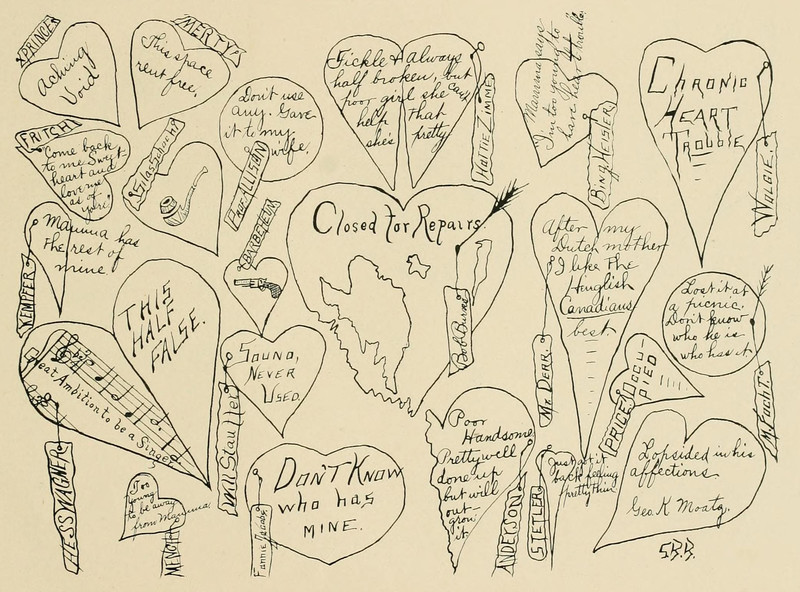 PRINCE
Aching
Void
MERTY
This space
rent free.
Fickle & always
half broken, but
poor girl she can't
help that
she's pretty.
HATTIE ZIMME
Mamma says
I'm too young to
have heart trouble.
BING HEISLER
CHRONIC
HEART
TROUBLE
WOLGIE.
FRITCH
Come back
to me Sweet-
heart and
love me
as of
yore.
Don't use
any. Gave
it to my
wife.
Prof. ILLSION
Mamma has
the rest of
mine.
KEMPFER
BARBETEUR
Closed for Repairs.
Bob Burns
After my
Dutch mother
I like the
Henglish
Canadians
best.
Mr. DERR.
Lost it at
a picnic.
Don't know
who he is
who has it
M. Fucht.
THIS
HALF
FALSE.
Great Ambition to be a Singer
HESS WAGNER
SOUND,
NEVER
USED.
Will Stauffer
PRICE
OCCU-
PIED
Too
young
to be away
from Mamma.
DON'T KNOW
WHO HAS
MINE.
Fannie Jacobs
Poor
Handsome
Pretty well
done up
but will
out-
grow
it.
ANDERSON
STETLER
Just got it
back feeling
pretty thin
Lopsided in his
affections.
Geo. K Moatz.
S.B.B.